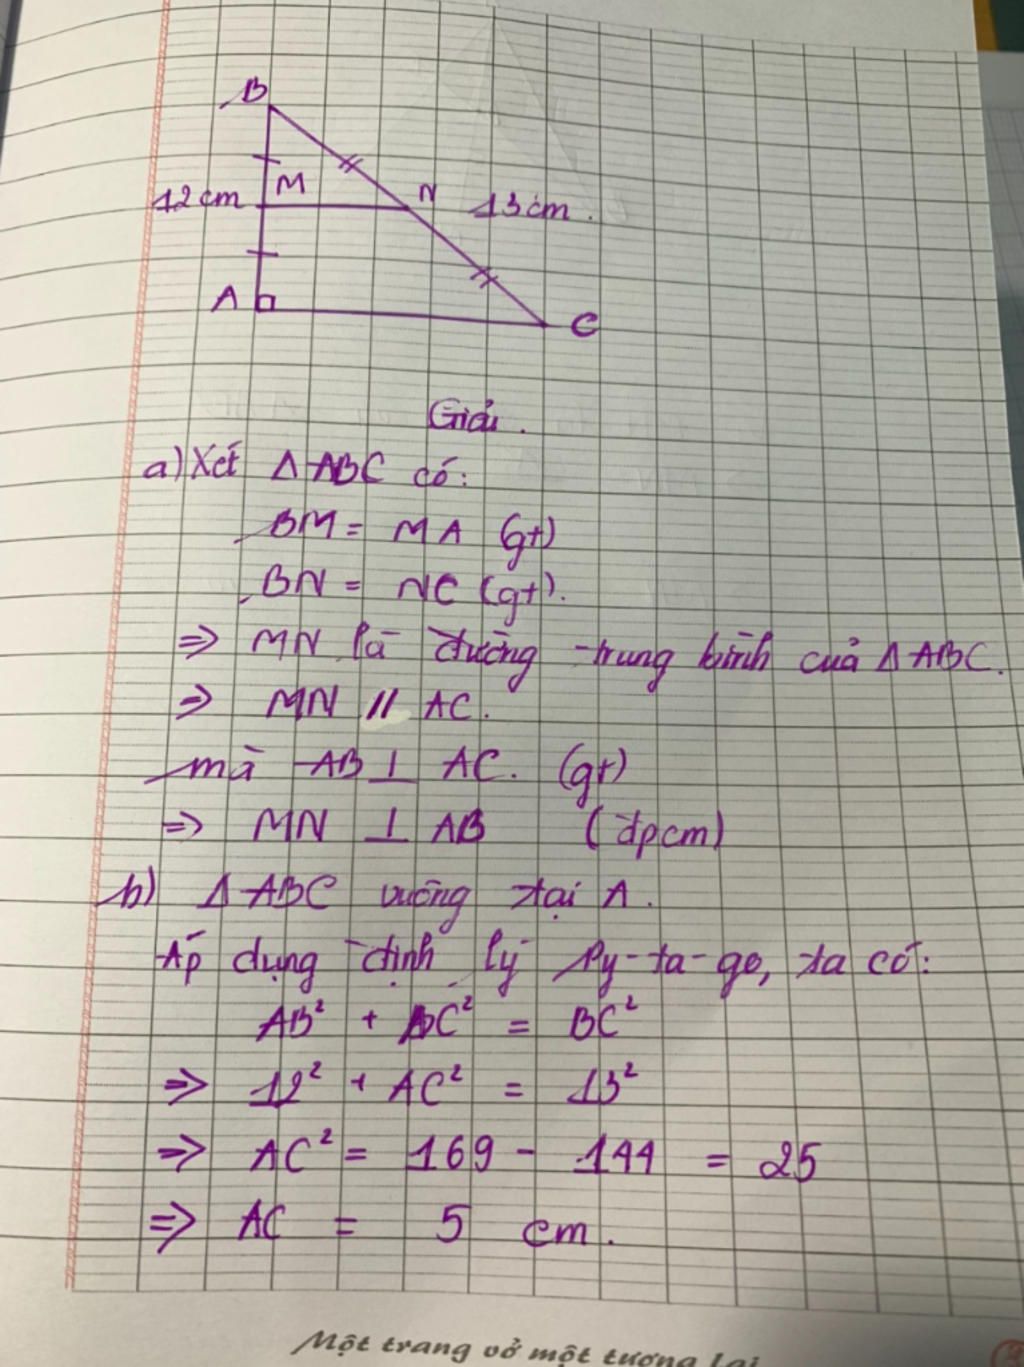 B
M
N
12cm
13cm.
A
C
Giải.
a) Xét Δ ABC có:
BM = MA (gt)
BN = NC (gt).
⇒ MN là đường trung bình của Δ ABC.
⇒ MN // AC.
mà AB ⊥ AC. (gt)
⇒ MN ⊥ AB (đpcm)
b) Δ ABC vuông tại A.
Áp dụng định lý Py-ta-go, ta có:
AB² + AC² = BC²
⇒ 12² + AC² = 13²
⇒ AC² = 169 - 144 = 25
⇒ AC = 5 cm.
Một trang vở một tương lai